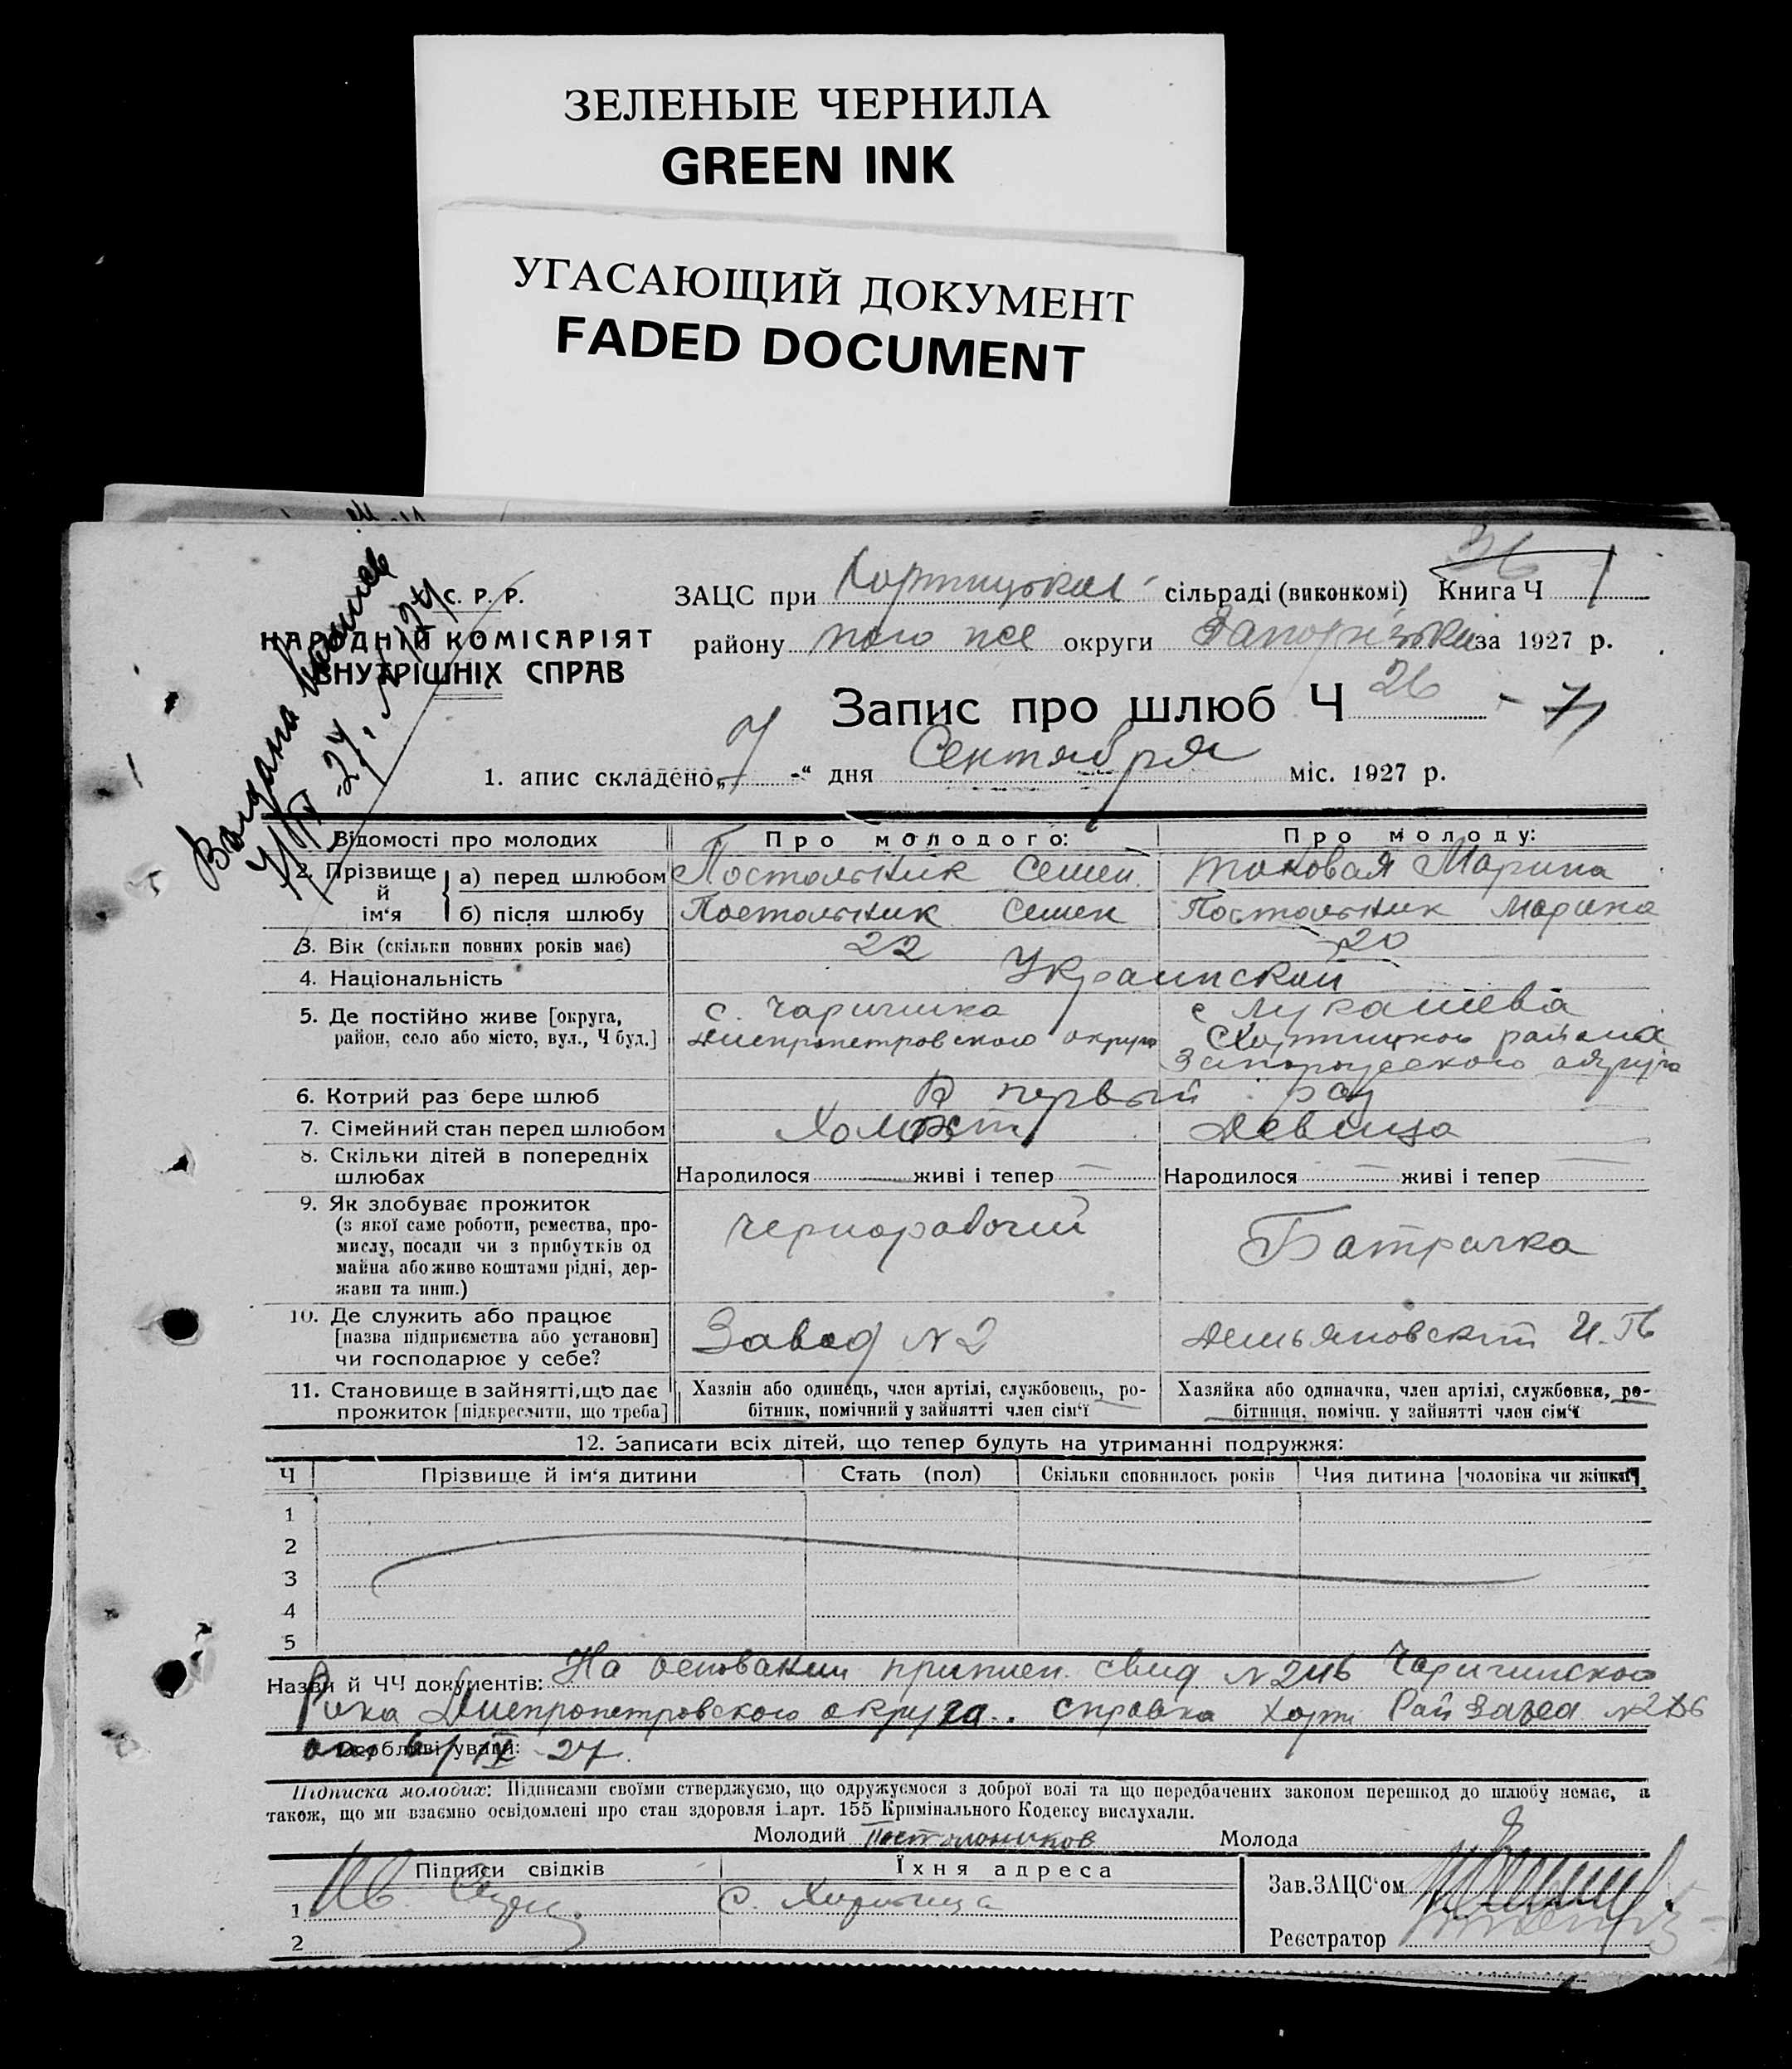 ЗЕЛЕНЫЕ ЧЕРНИЛА
GREEN INK
УГАСАЮЩИЙ ДОКУМЕНТ
FADED DOCUMENT
36
С. Р. Р.
НАРОДНІЙ КОМІСАРІЯТ
ВНУТРІШНІХ СПРАВ
ЗАЦС при Хортицькій сільраді (виконкомі) Книга Ч 1
району того же округи за 1927 р.
Запис про шлюб Ч 26 - 7
1. апис складено „7-“ дня Сентября міс. 1927 р.
Видана
Відомості про молодих
Про молодого:
Про молоду:
2. Прізвище й ім‘я
а) перед шлюбом Постольник Семен Марина
б) після шлюбу Постольник Семен Постольник Марина
3. Вік (скільки повних років має) 22 20
4. Національність Украинской
5. Де постійно живе [округа, район, село або місто, вул., Ч буд.]
с. Чаричинка
Днепропетровского округа
с Лукашева
Хортицкого района
Запорожского округа
6. Котрий раз бере шлюб В первый раз
7. Сімейний стан перед шлюбом Холост Девица
8. Скільки дітей в попередніх шлюбах
Народилося живі і тепер
Народилося живі і тепер
9. Як здобуває прожиток
(з якої саме роботи, ремества, про-
мислу, посади чи з прибутків од
майна або живе коштами рідні, дер-
жави та инш.)
чернорабочий
Батрачка
10. Де служить або працює
[назва підприємства або установи]
чи господарює у себе?
Завод N 2
11. Становище в зайнятті, що дає
прожиток [підкреслити, що треба]
Хазяін або одинець, член артілі, службовець, ро-
бітник, помічний у зайнятті член сім‘ї
Хазяйка або одиначка, член артілі, службовка, ро-
бітниця, помічн. у зайнятті член сім‘ї
12. Записати всіх дітей, що тепер будуть на утриманні подружжя:
Ч Прізвище й ім‘я дитини Стать (пол) Скільки сповнилось років Чия дитина [чоловіка чи жінки]
1
2
3
4
5
Назви й ЧЧ документів: На основании припис. свид N 246 Чаричинского
Рика Днепропетровского округа. Справка Хорт Рай Загса
Особливі уваги: от 6/IX-27.
Підписка молодих: Підписами своїми стверджуємо, що одружуємося з доброї волі та що передбачених законом перешкод до шлюбу немає, а
також, що ми взаємно освідомлені про стан здоровля і арт. 155 Кримінального Кодексу вислухали.
Молодий Молода
Підписи свідків
Їхня адреса
1 с. Хортица
2
Зав. ЗАЦС‘ом
Реєстратор